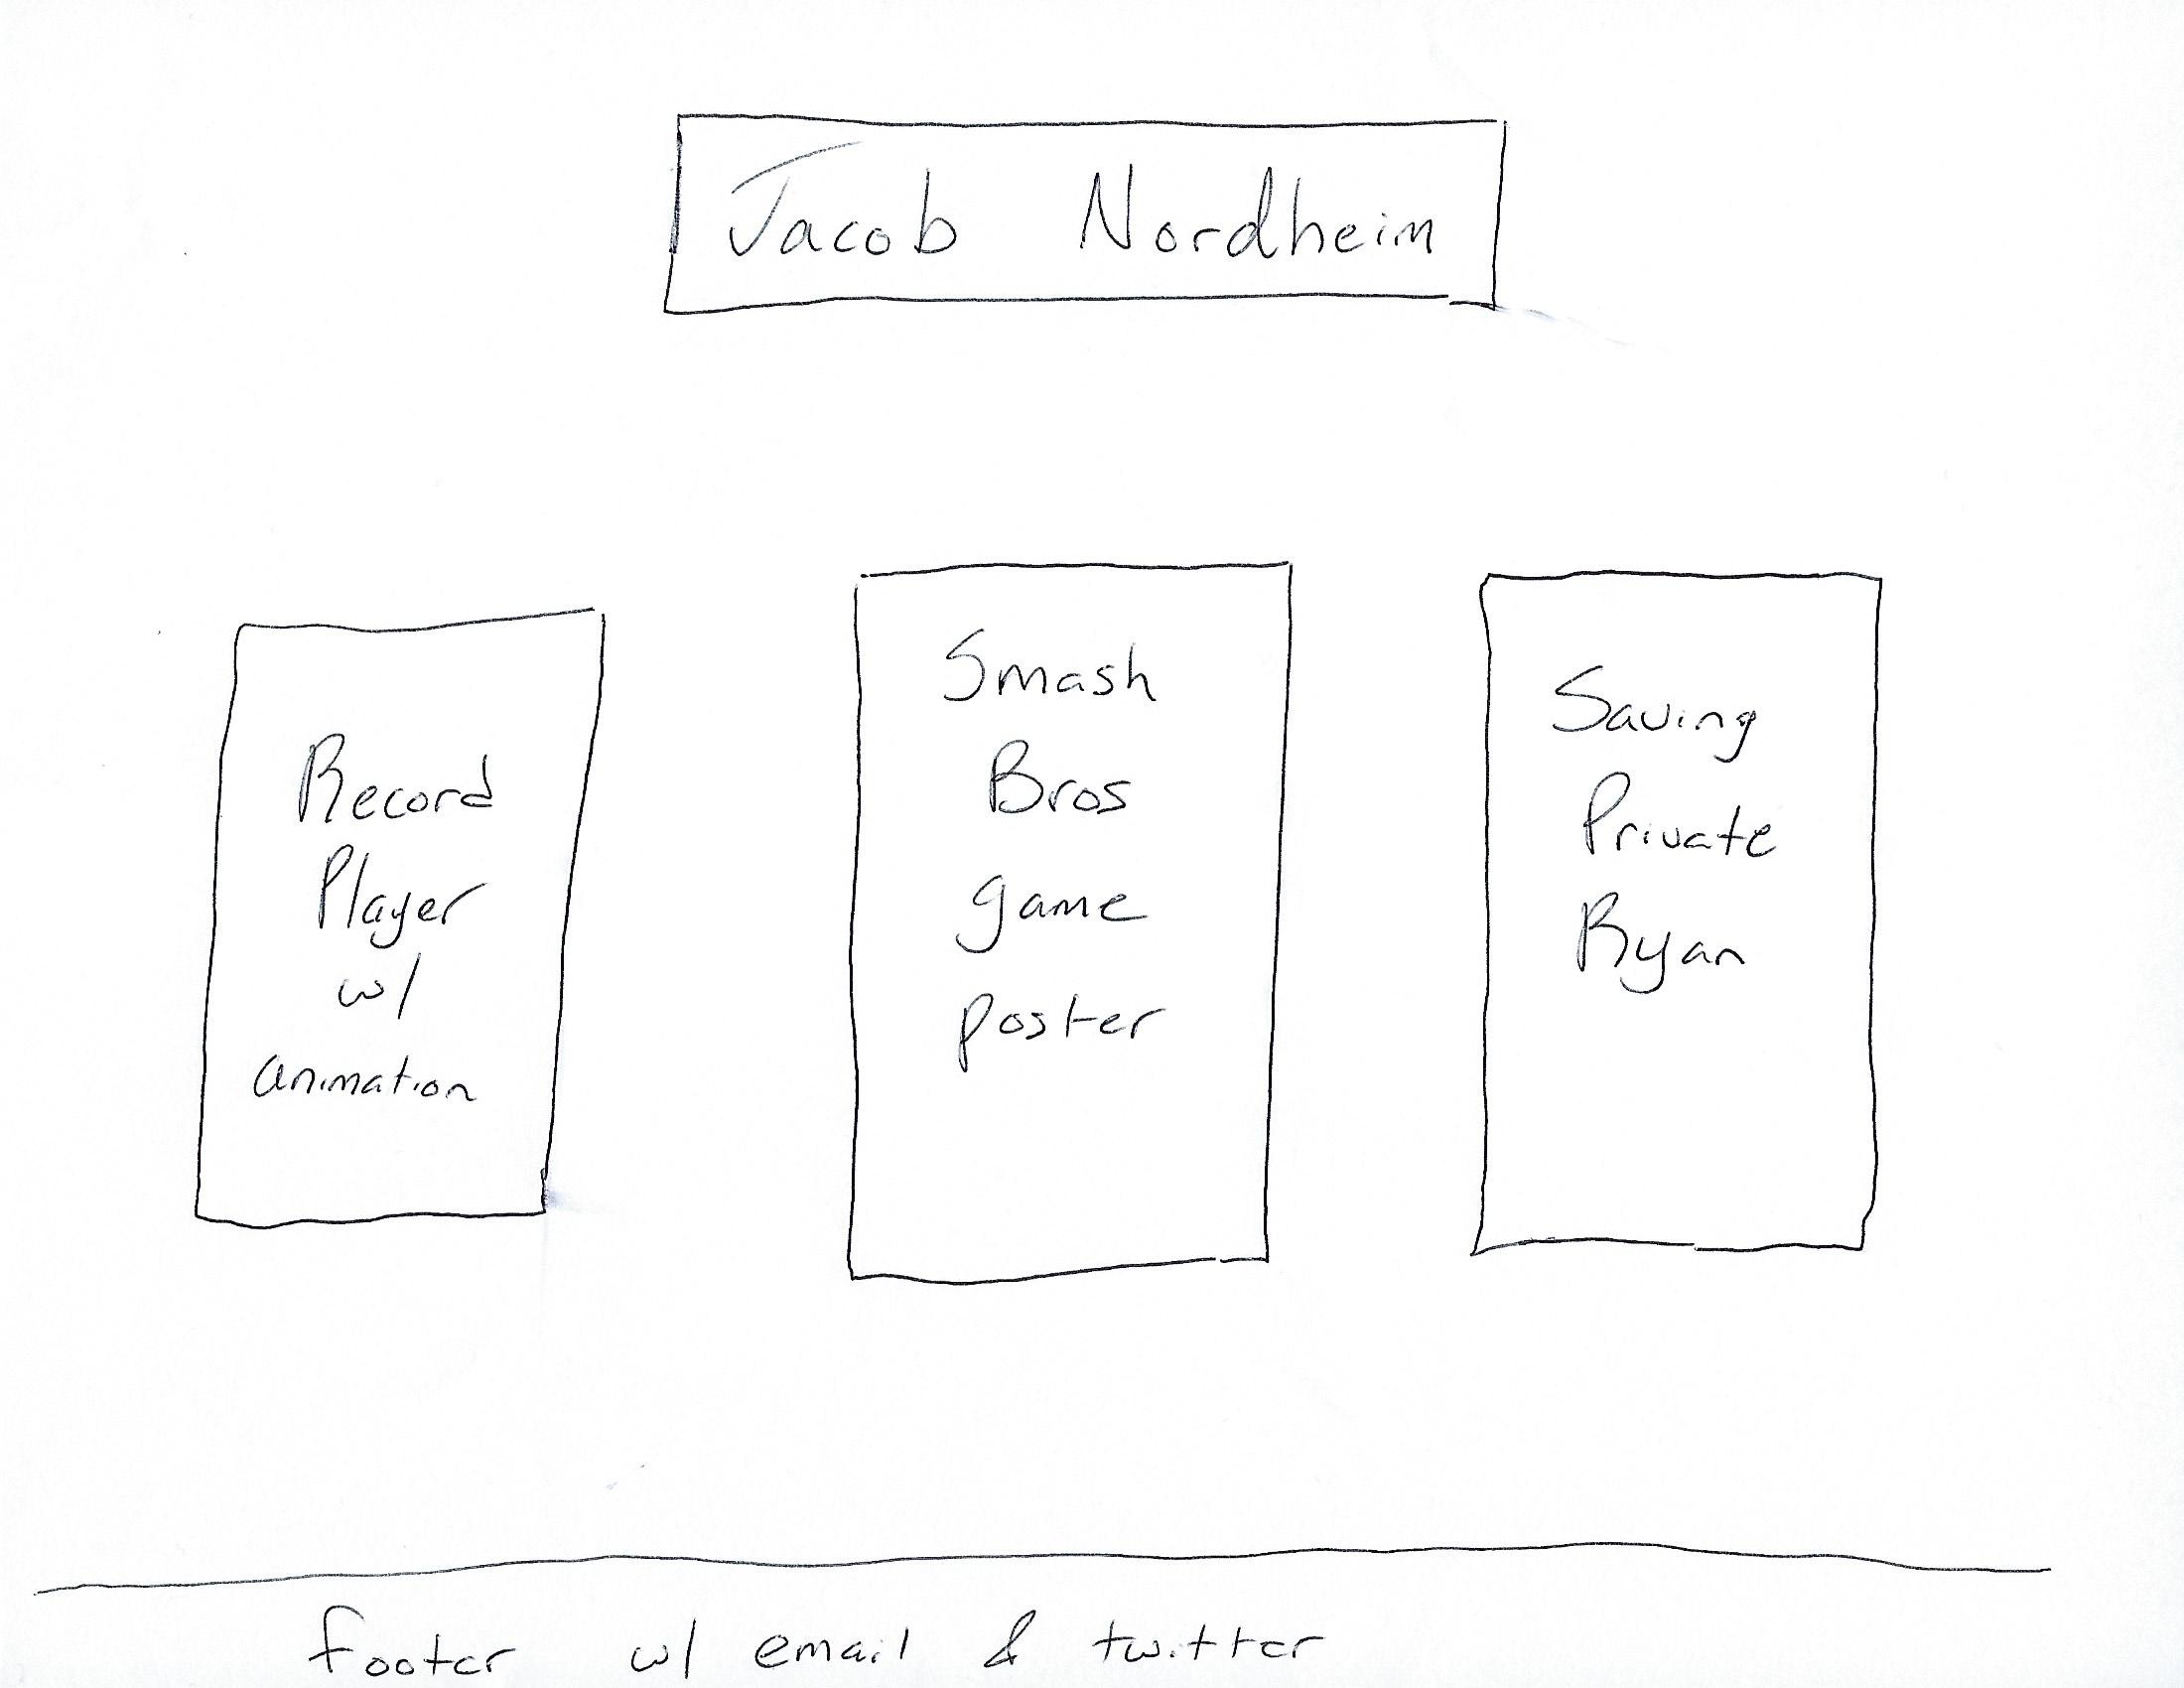 Jacob Nordheim
Record
Player
w/
animation
Smash
Bros
game
poster
Saving
Private
Ryan
footer w/ email & twitter